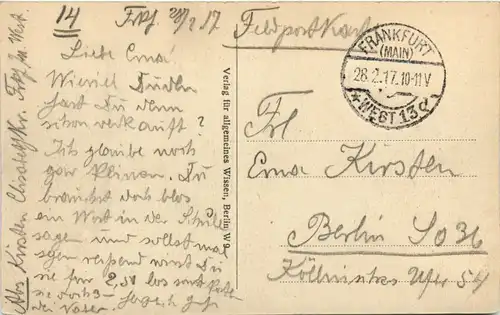 14 Frkf. 28/2 17
Liebe Erna!
Wieviel Pudeln
hast Du denn
schon verkauft?
Ich glaube noch
gar keinen. Du
brauchst doch blos
ein Wort in der Schule
sagen und sollst mal
sehen reißend wirst Du
sie für 2,50 los
sie doch
der Vater.
Abs Kirsten
Verlag für allgemeines Wissen, Berlin W 9.
Feldpostkarte
FRANKFURT
(MAIN)
28.2.17.10-11V
*WEST 13d
Frl
Erna Kirsten
Berlin SO 36
Köllnisches Ufer 54